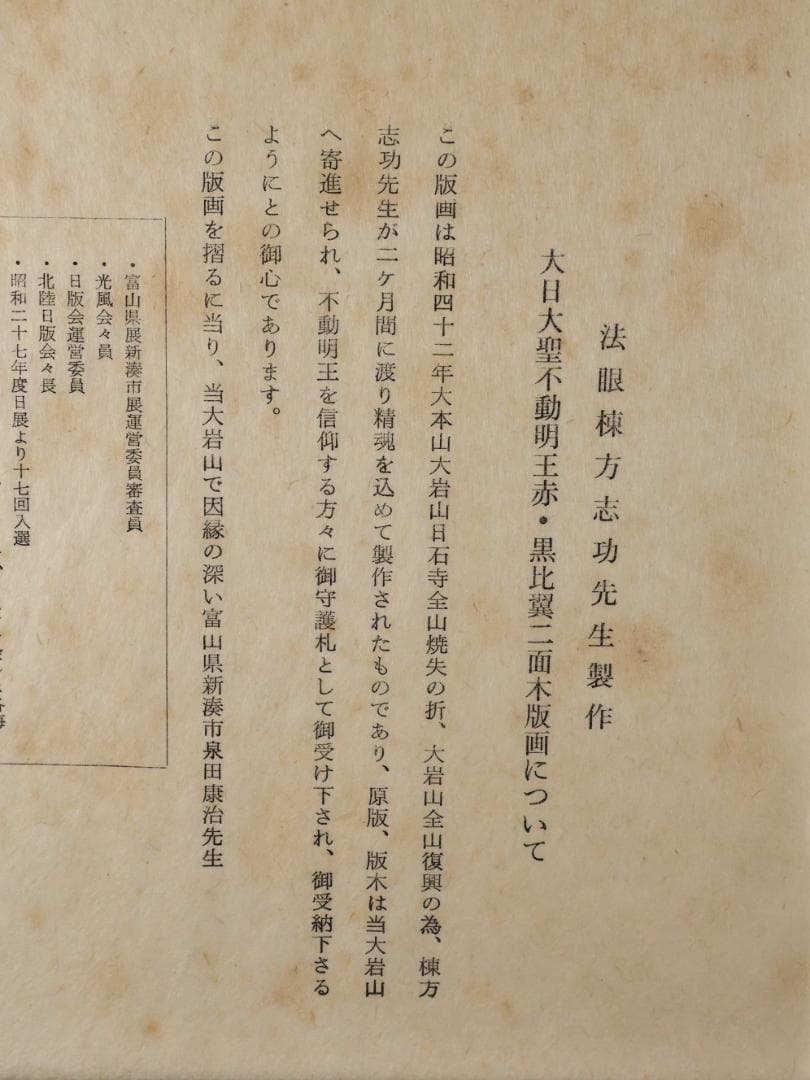 法眼棟方志功先生製作
大日大聖不動明王赤・黒比翼二面木版画について
この版画は昭和四十二年大本山大岩山日石寺全山焼失の折、大岩山全山復興の為、棟方
志功先生が二ケ月間に渡り精魂を込めて製作されたものであり、原版、版木は当大岩山
へ寄進せられ、不動明王を信仰する方々に御守護札として御受け下され、御受納下さる
ようにとの御心であります。
この版画を摺るに当り、当大岩山で因縁の深い富山県新湊市泉田康治先生
・富山県展新湊市展運営委員審査員
・光風会々員
・日版会運営委員
・北陸日版会々長
・昭和二十七年度日展より十七回入選